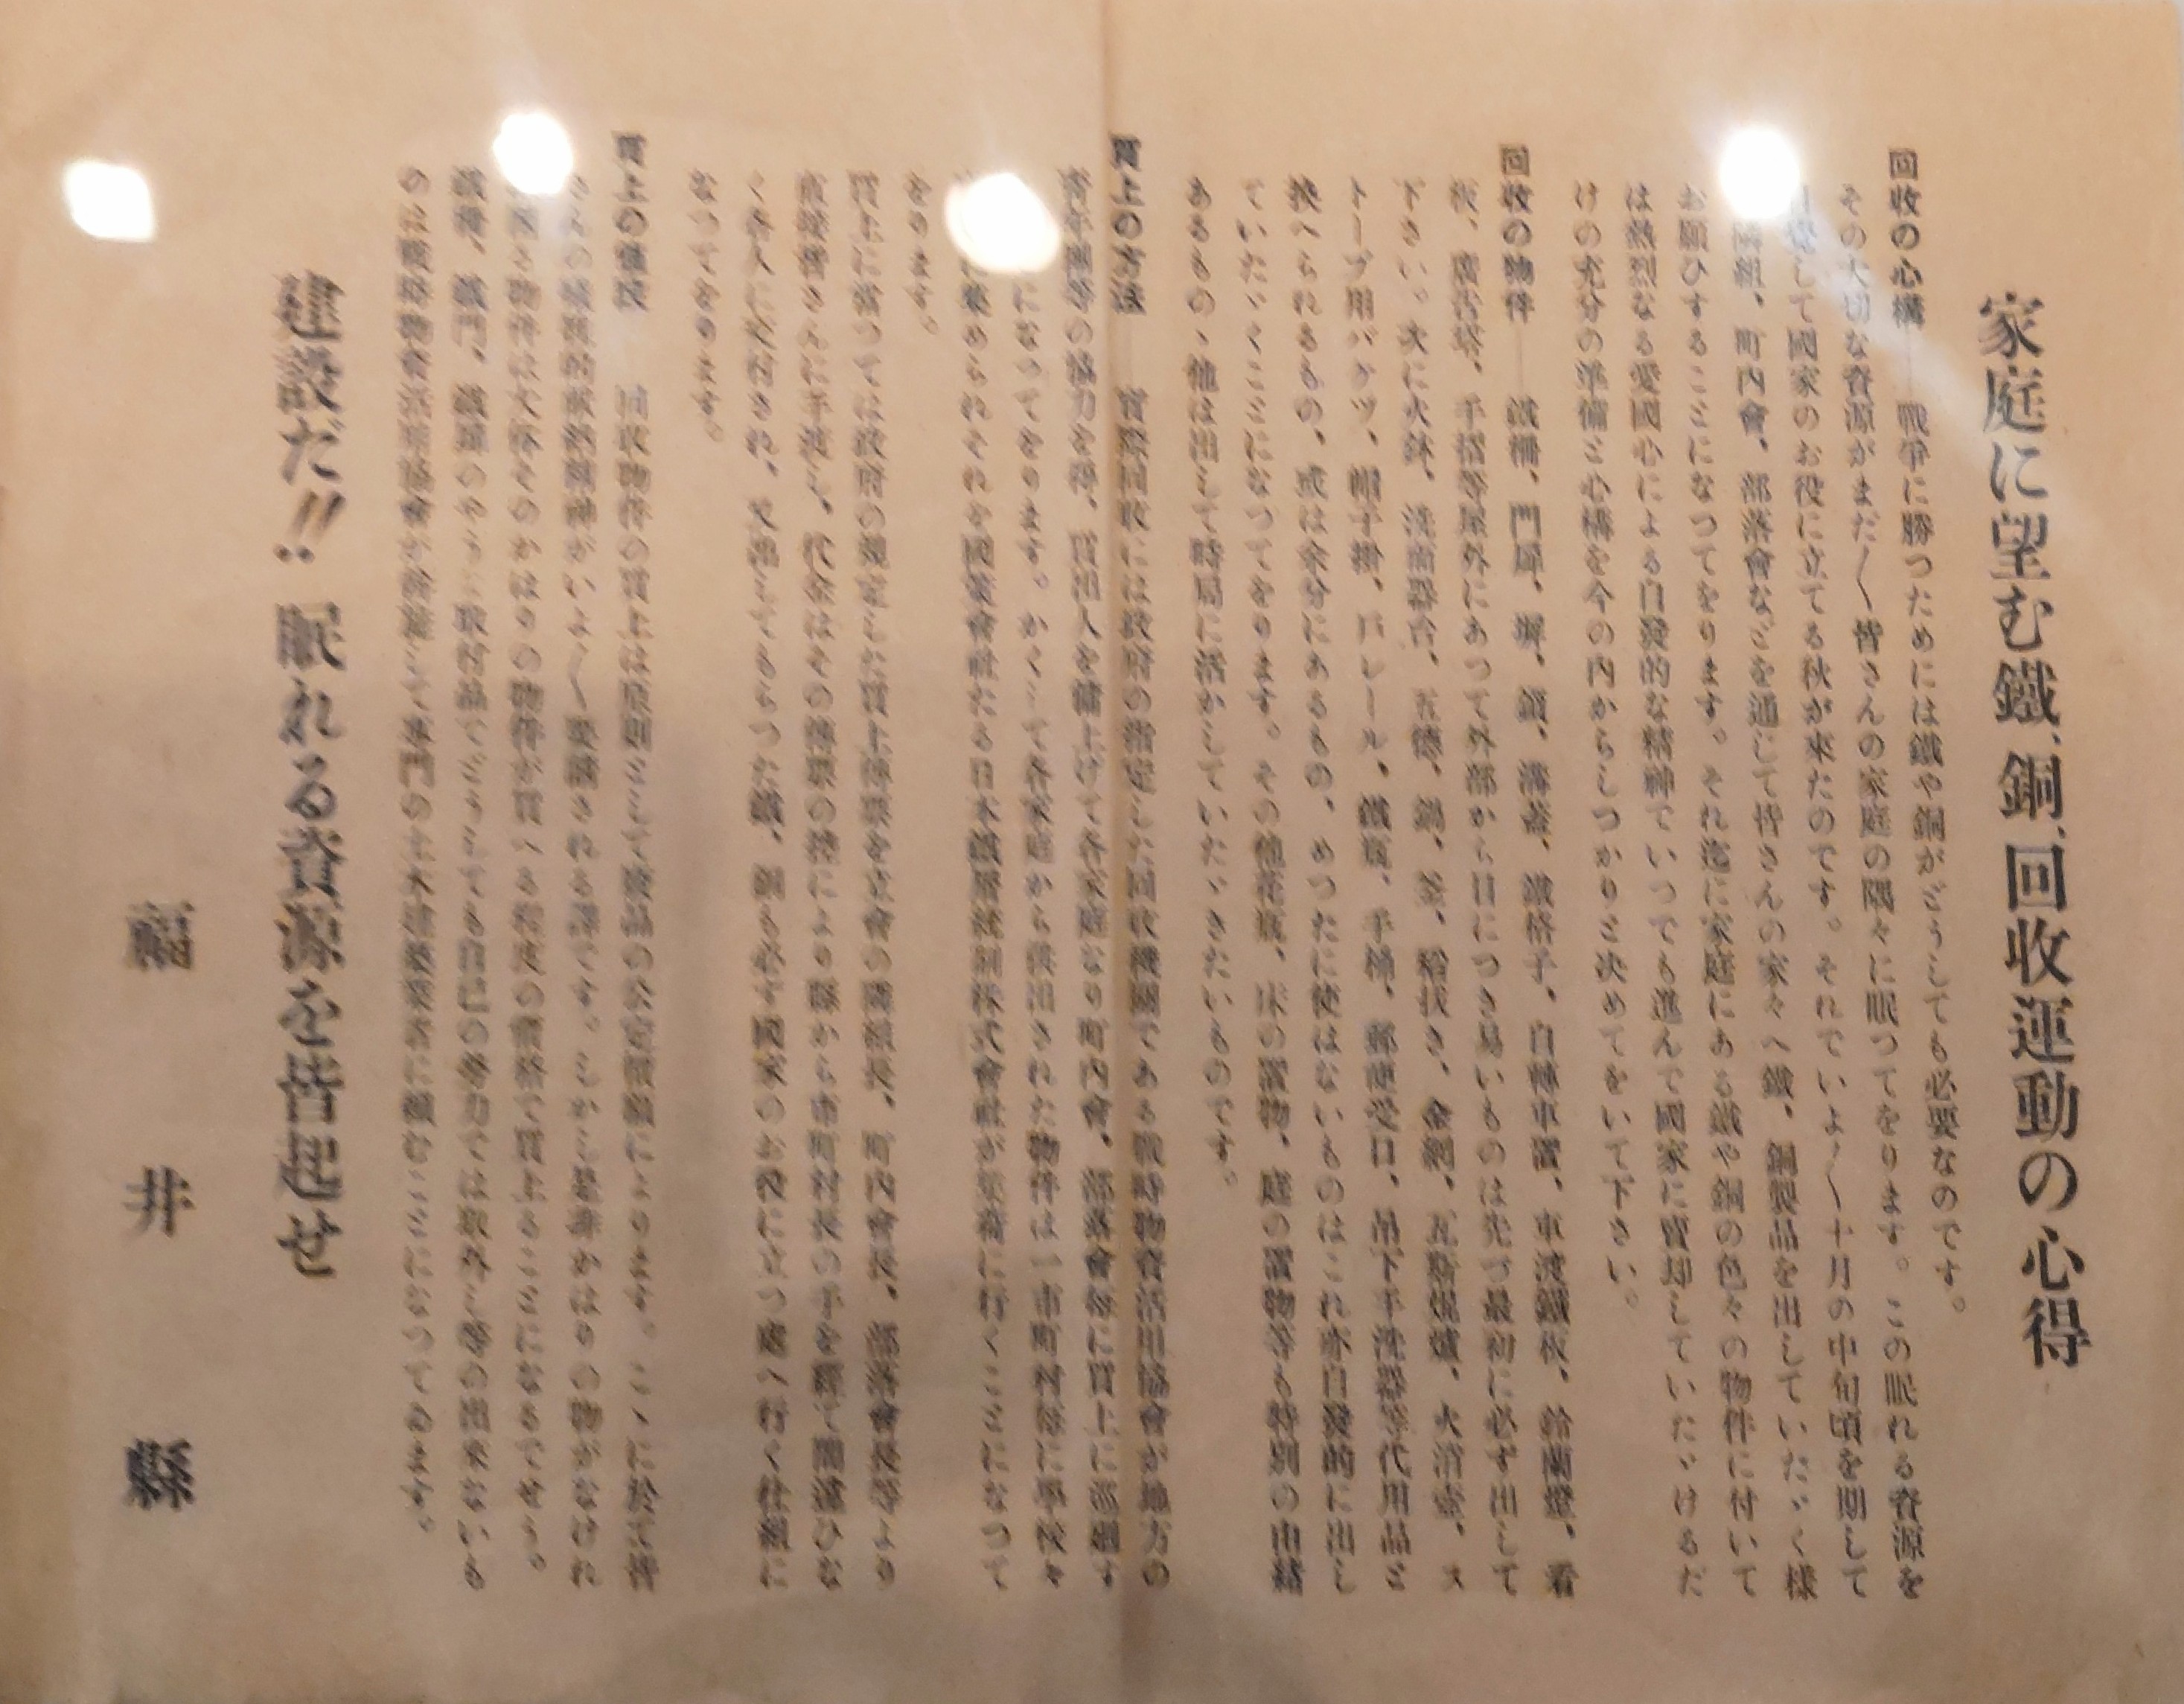 家庭に望む鐵、銅、回收運動の心得
回收の心構――戰爭に勝つためには鐵や銅がどうしても必要なのです。
その大切な資源がまだ〱皆さんの家庭の隅々に眠つてをります。この眠れる資源を
して國家のお役に立てる秋が來たのです。それでいよ〱十月の中旬頃を期して
隣組、町內會、部落會などを通じて皆さんの家々へ鐵、銅製品を出していたゞく樣
お願ひすることになつてをります。それ迄に家庭にある鐵や銅の色々の物件に付いて
は熱烈なる愛國心による自發的な精神でいつでも進んで國家に賣却していたゞけるだ
けの充分の準備と心構を今の內からしつかりと決めてをいて下さい。
回收の物件――鐵柵、門扉、塀、鎖、溝蓋、鐵格子、自轉車置、車渡鐵板、鈴蘭燈、看
板、廣告塔、手摺等屋外にあつて外部から目につき易いものは先づ最初に必ず出して
下さい。次に火鉢、洗面器台、五德、鍋、釜、金網、瓦斯焜爐、火消壺、ス
トーブ用バケツ、帽子掛、戶レール、鐵瓶、手桶、郵便受口、吊下手洗器等代用品と
換へられるもの、或は余分にあるもの、めつたに使はないものはこれ亦自發的に出し
ていたゞくことになつてをります。その他花瓶、床の置物、庭の置物等も特別の由緒
あるものゝ他は出して時局に活かしていたゞきたいものです。
買上の方法――實際回收には政府の指定した回收機關である戰時物資活用協會が地方の
靑年團等の協力を得、買出人を傭上げて各家庭なり町內會、部落會每に買上に巡廻す
になつてをります。かくして各家庭から供出された物件は一市町村每に學校々
に集められそれを國策會社たる日本鐵屑統制株式會社が集荷に行くことになつて
をります。
買上に當つては政府の規定した買上傳票を立會の隣組長、町內會長、部落會長等より
直接皆さんに手渡し、代金はその傳票の控により縣から市町村長の手を經て間違ひな
く各人に交付され、又出してもらつた鐵、銅も必ず國家のお役に立つ處へ行く仕組に
なつてをります。
買上の値段――回收物件の買上は原則として廢品の公定價額によります。こゝに於て皆
さんの積極的な精神がいよ〱發揮される譯です。しかし是非かはりの物がなけれ
困る物件は大體そのかはりの物件が買へる程度の價格で買上ることになるでせう。
鐵柵、鐵門、鐵扉のやうに取付品でどうしても自己の勞力では取外し等の出來ないも
のは戰時物資活用協會が斡旋して專門の土木建築業者に賴むことになつてゐます。
建設だ!! 眠れる資源を皆起せ
福井縣